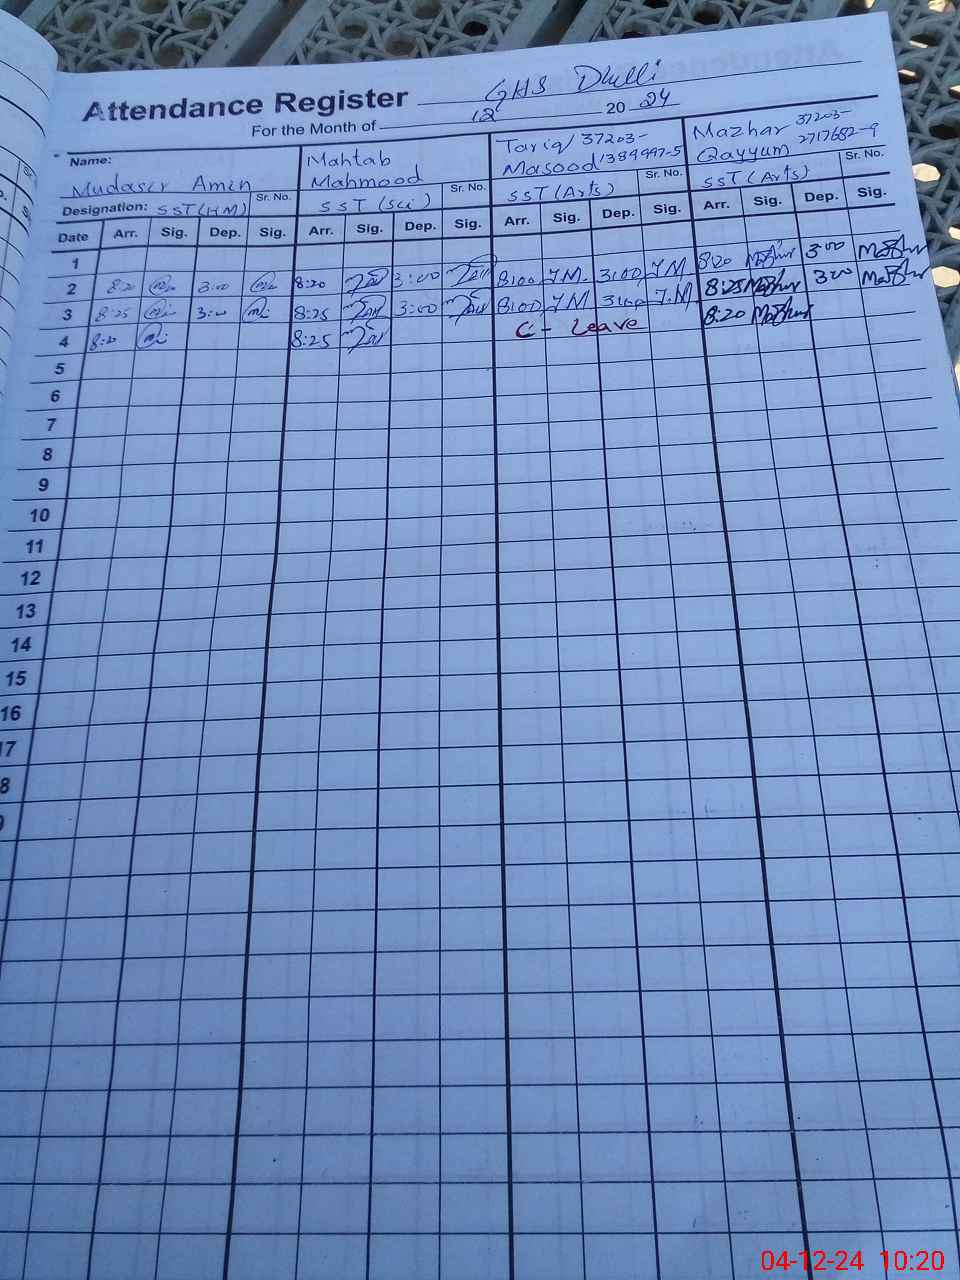 Attendance Register GHS Dhulli
For the Month of 12 20 24
Name: Mudasir Amin
Mahtab
Mahmood
Tariq 37203-
Masood 1389997-5
Mazhar 37203-
Qayyum 2717682-9
Designation: SST(HM) Sr. No.
SST (Sci) Sr. No.
SST (Arts) Sr. No.
SST (Arts) Sr. No.
Date Arr. Sig. Dep. Sig. Arr. Sig. Dep. Sig. Arr. Sig. Dep. Sig. Arr. Sig. Dep. Sig.
1
2 8:20 3:00 8:20 3:00 8:00 T.M. 3:00 T.M 8:20 Mazhar 3:00 Mazhar
3 8:25 3:00 8:25 3:00 8:00 T.M 3:00 T.M 8:25 Mazhar 3:00 Mazhar
4 8:20 8:25 C - Leave 8:20 Mazhar
5
6
7
8
9
10
11
12
13
14
15
16
17
8
04-12-24 10:20